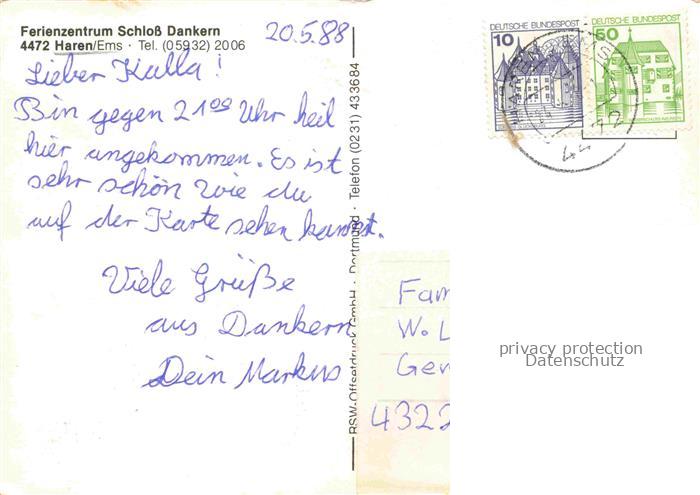 Ferienzentrum Schloß Dankern
4472 Haren/Ems · Tel. (05932) 2006
20.5.88
Lieber Kalla!
Bin gegen 21 00 Uhr heil
hier angekommen. Es ist
sehr schön wie du
auf der Karte sehen kannst.
Viele Grüße
aus Dankern
Dein Markus
RSW-Offsetdruck GmbH · Dortmund · Telefon (0231) 433684
10 DEUTSCHE BUNDESPOST
60 DEUTSCHE BUNDESPOST
Fam
W. L
Ge
4322
privacy protection
Datenschutz